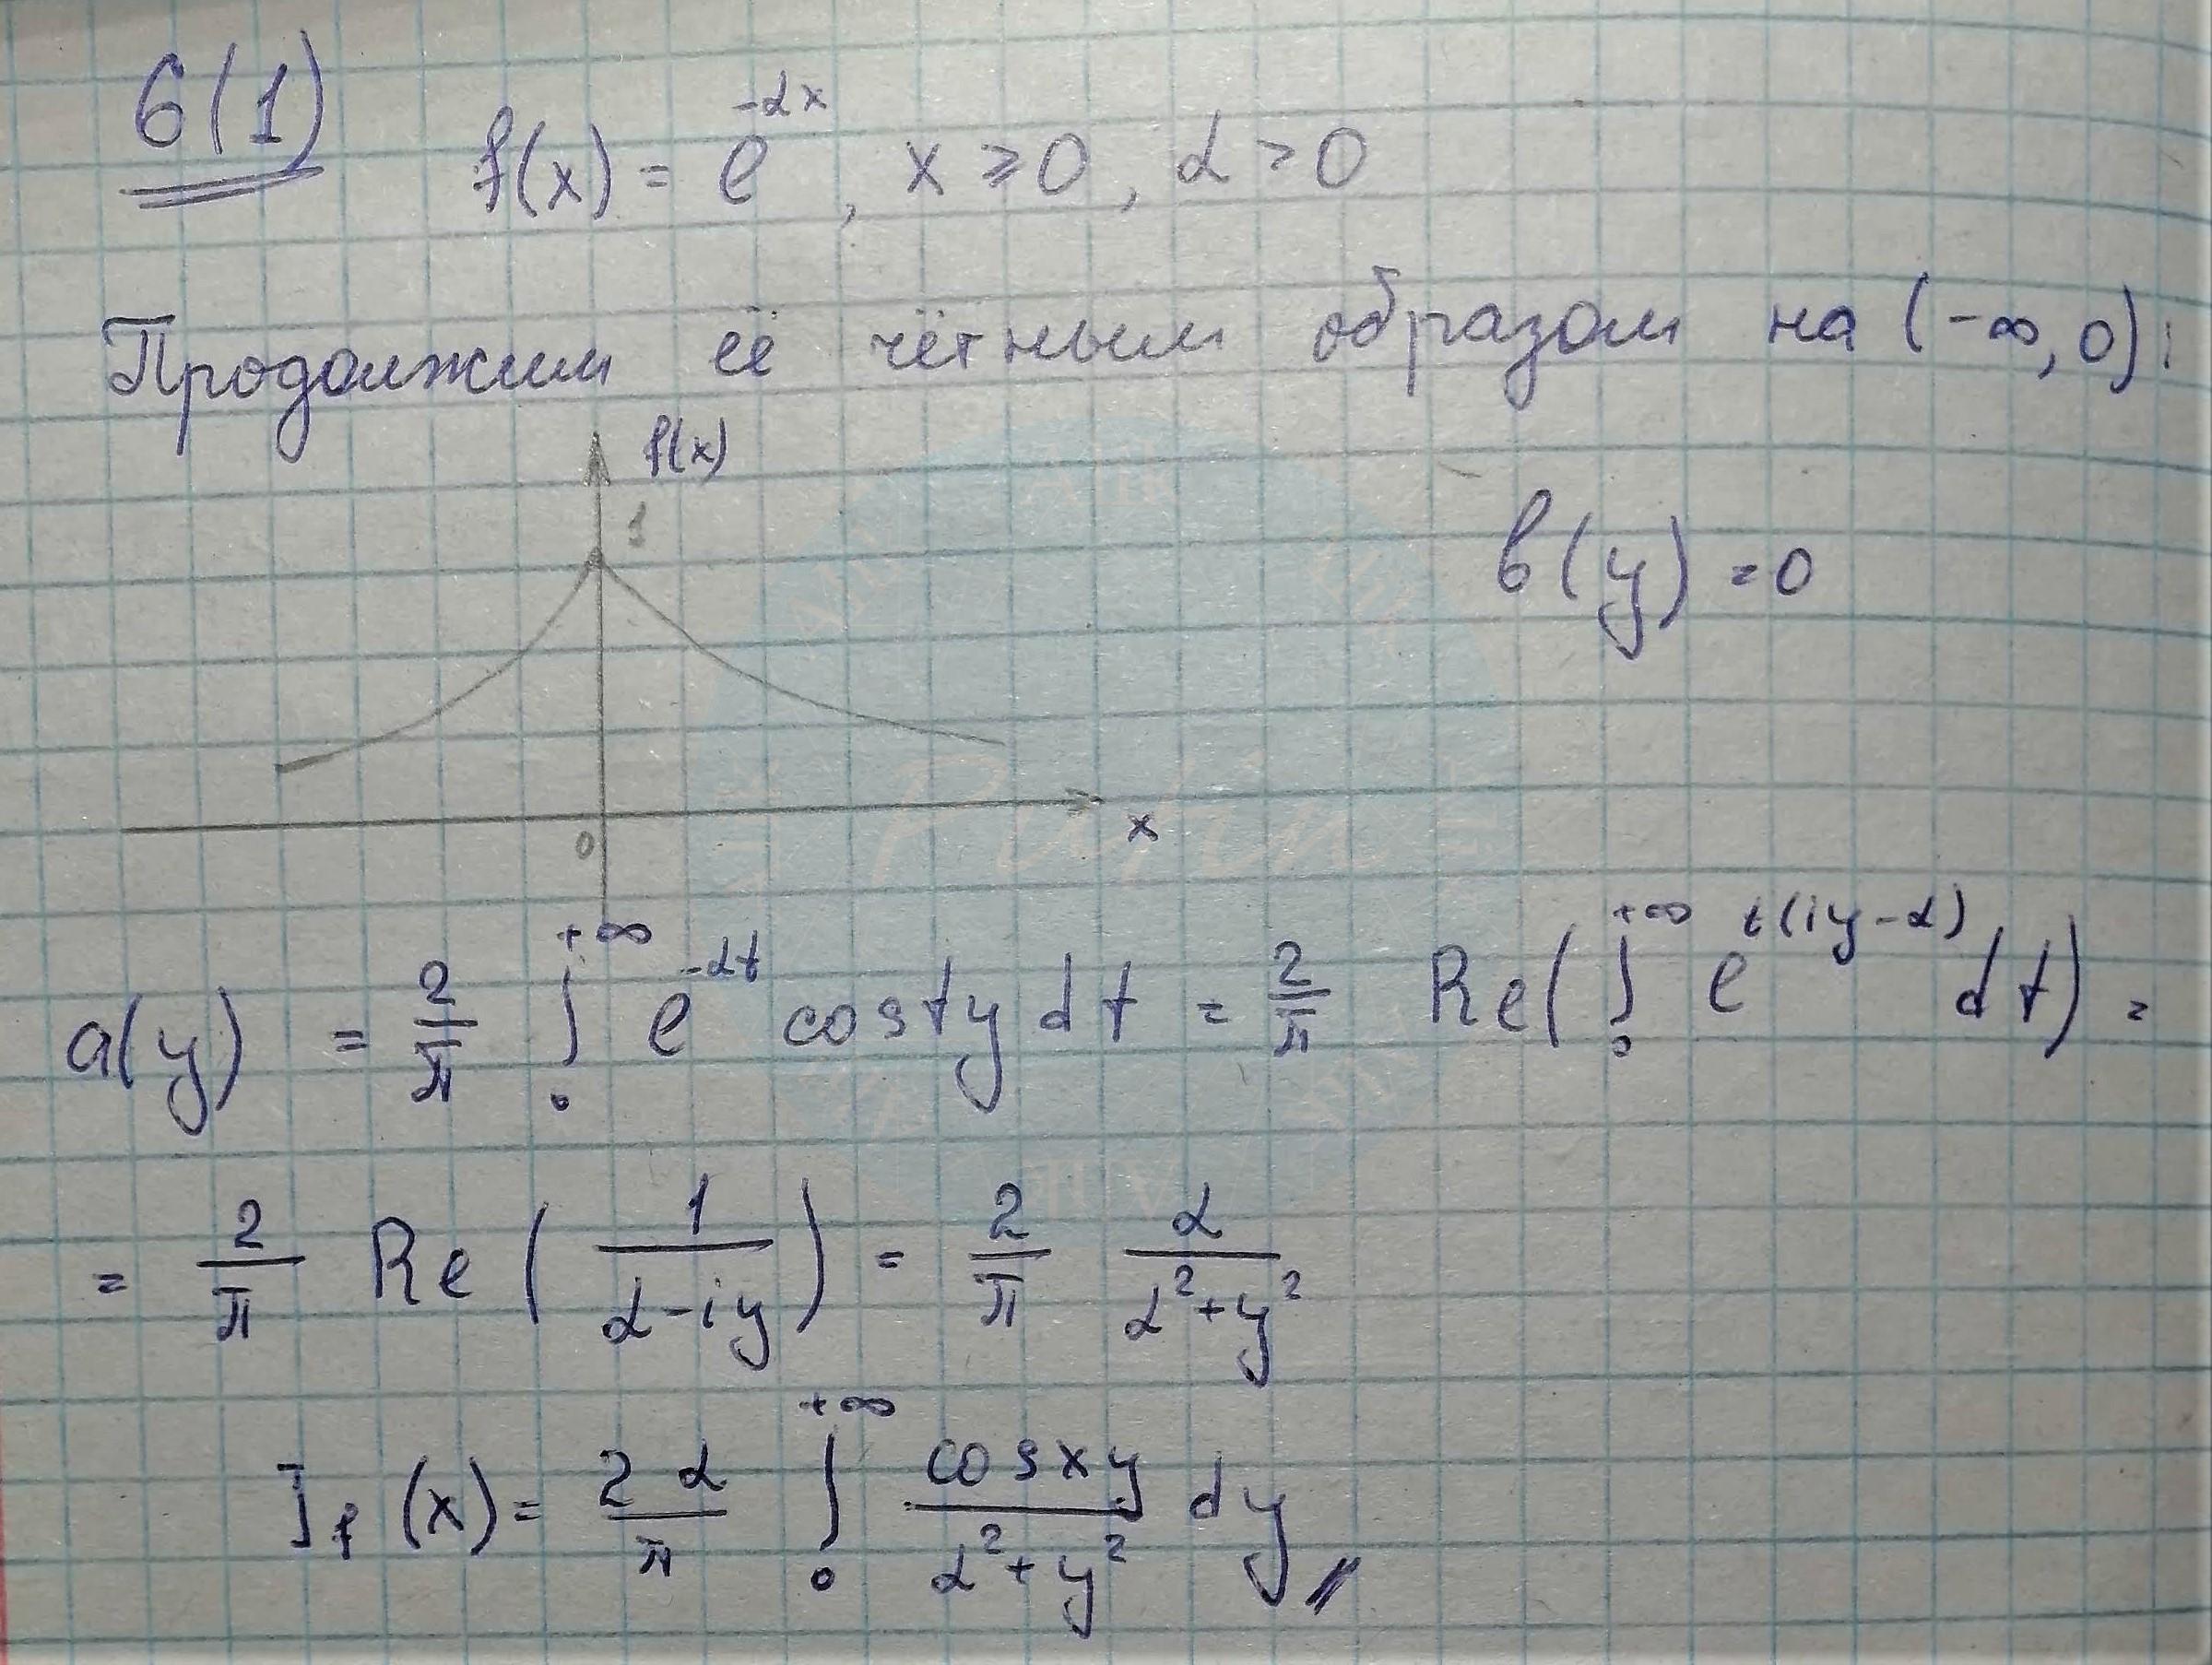 6(1) f(x) = e^{-αx}, x ≥ 0, α > 0
Продолжим её чётным образом на (-∞, 0):
f(x)
1
b(y) = 0
0
x
a(y) = \frac{2}{π} \int_0^{+∞} e^{-αt} cos ty dt = \frac{2}{π} Re(\int_0^{+∞} e^{t(iy-α)} dt) =
= \frac{2}{π} Re(\frac{1}{α-iy}) = \frac{2}{π} \frac{α}{α^2+y^2}
J_f(x) = \frac{2α}{π} \int_0^{+∞} \frac{cos xy}{α^2+y^2} dy //
Putin